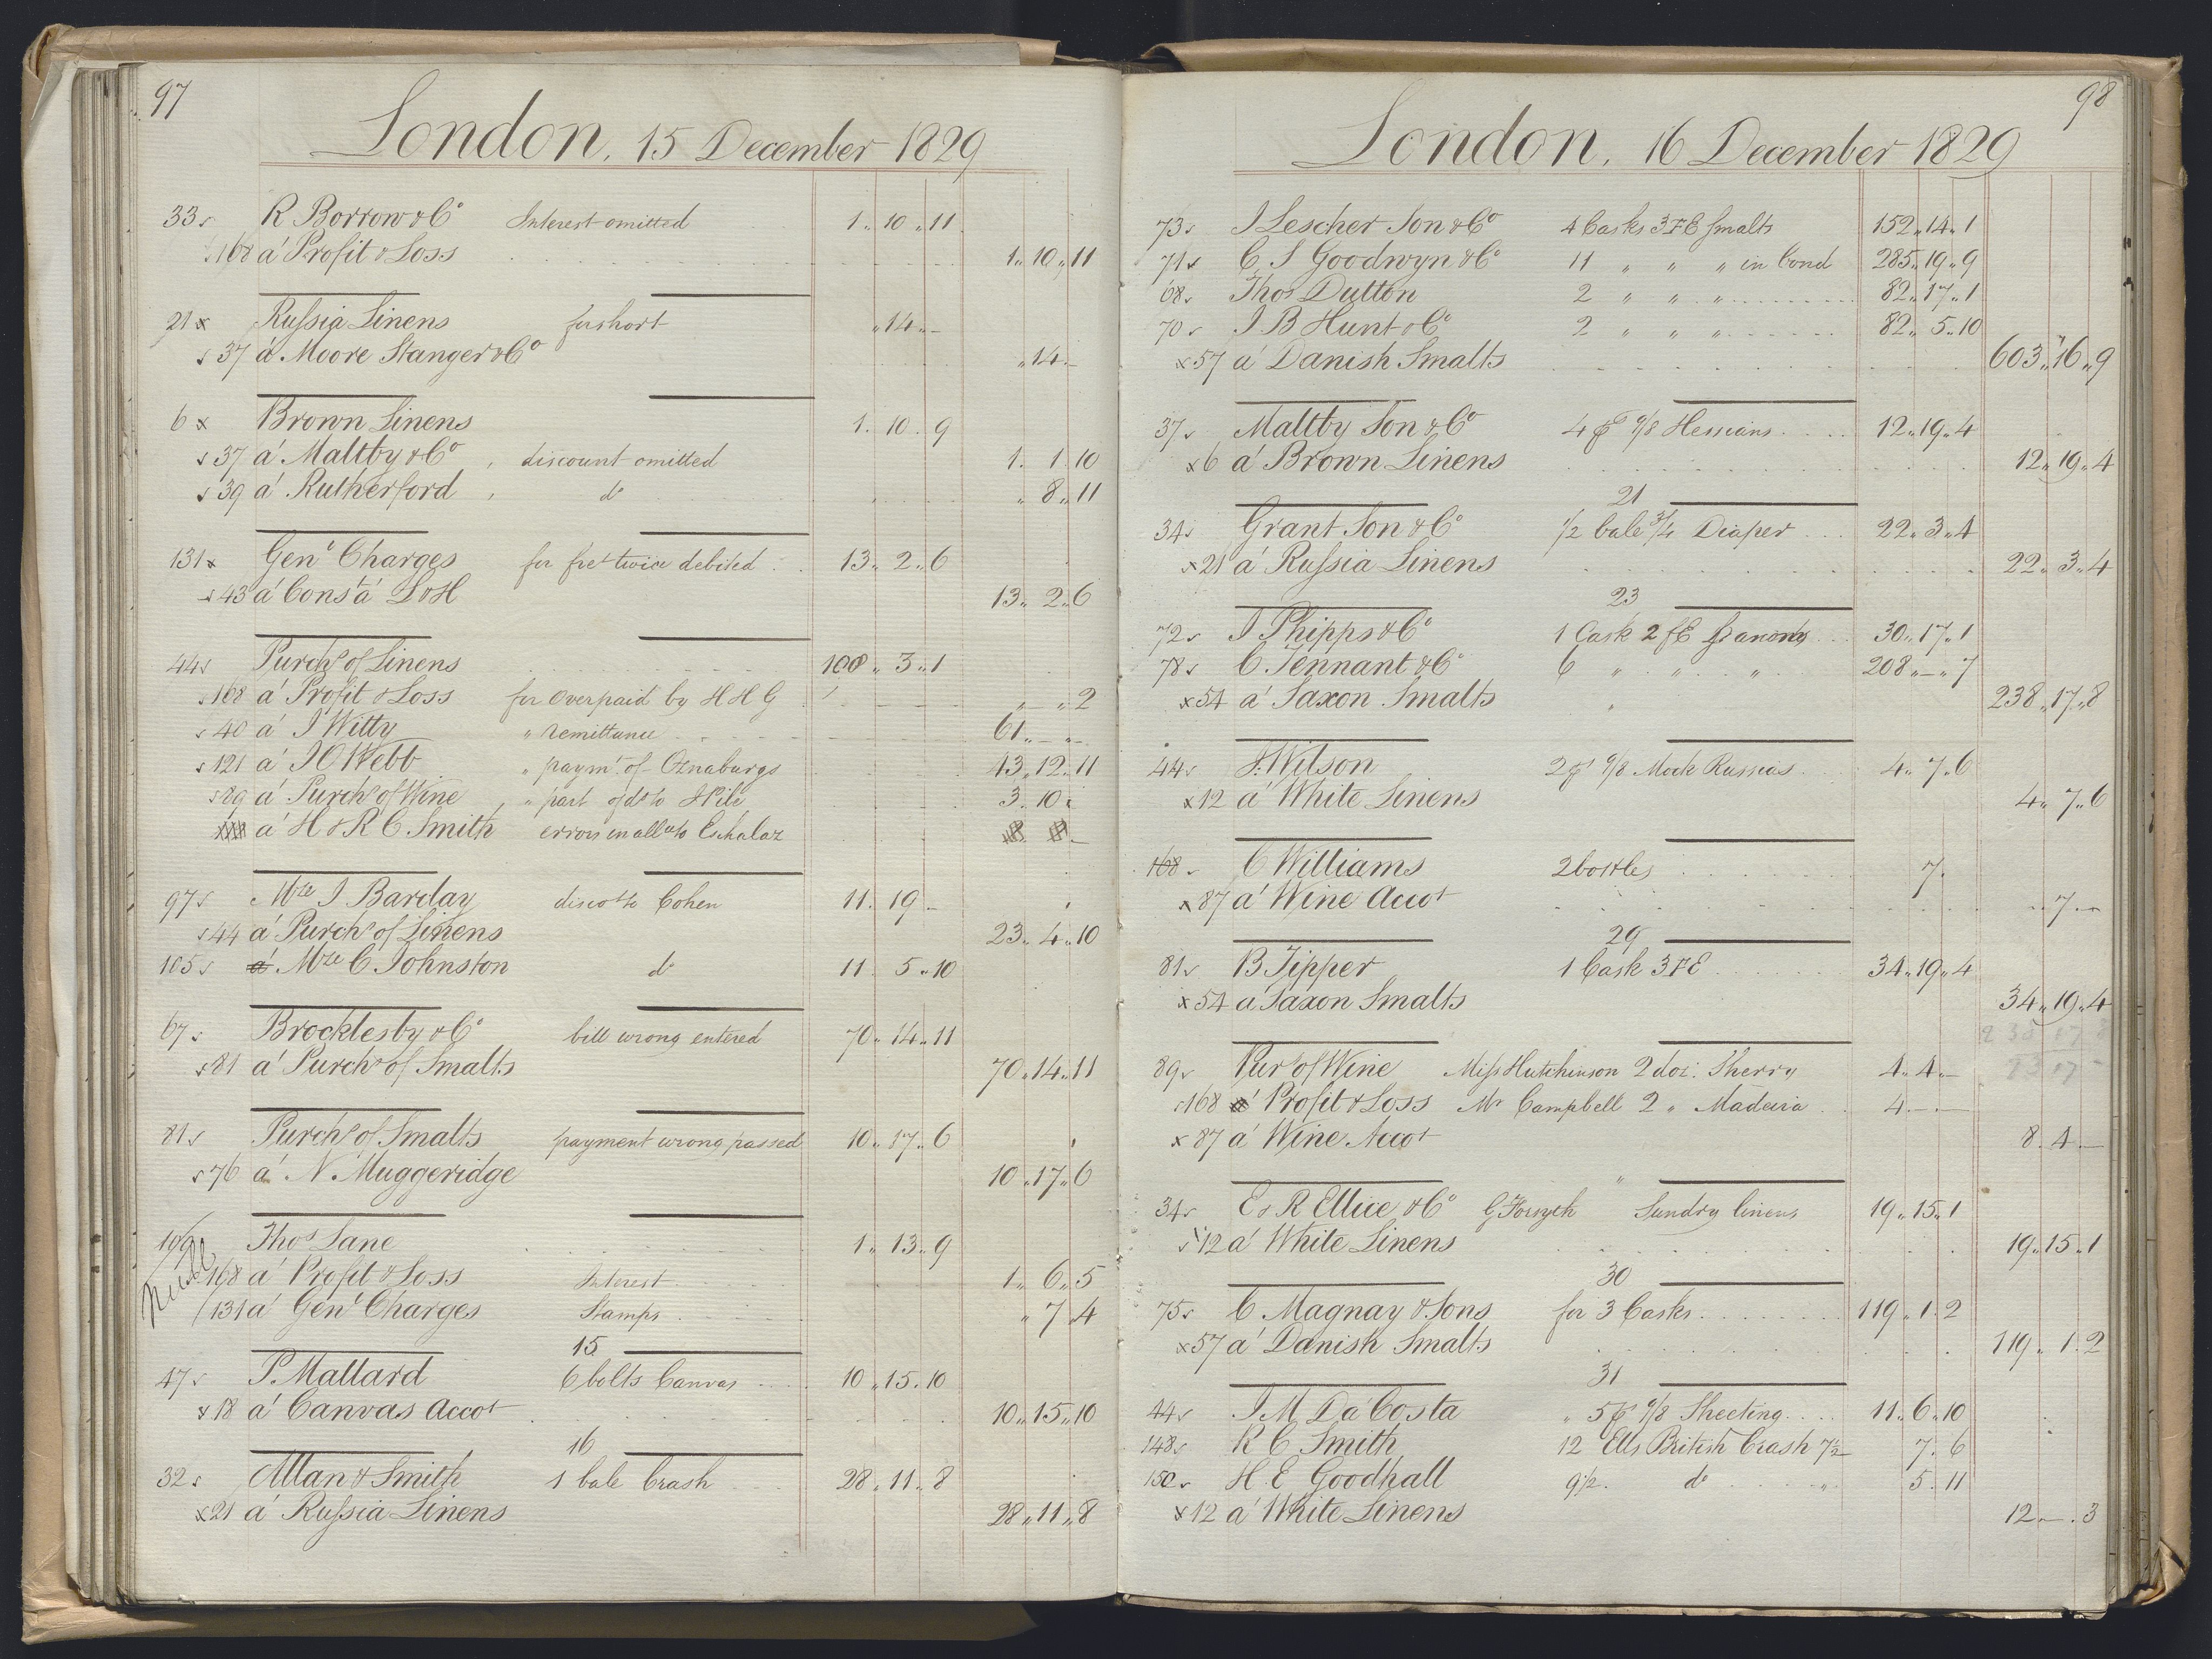 97
London, 15 December 1829
33 R Borrow & Co Interest omitted 1 10 11
168 a' Profit & Loss 1 10 11
21 x Russia Linens for short " 14 –
37 a' Moore Stanger & Co " 14 –
6 x Brown Linens 1 10 9
37 a' Maltby & Co, discount omitted 1 1 10
39 a' Rutherford, do " 8 11
131 x Genl Charges for fret twice debited 13 2 6
43 a' Cons a' L & H 13 2 6
44 Purchs of Linens 100 3 1
168 a' Profit & Loss for Overpaid by H H G " – " 2
40 a' J Witty " remittance 61 – " –
121 a' J O Webb " paymt of Oznaburgs 43 12 11
89 a' Purchs of Wine, " part of do to 3 10
a' H & R C Smith errors in allce to Eschalaz
97 Mze J Barclay discot to Cohen 11 19 –
44 a' Purchs of Linens 23 4 10
105 a' Mze C Johnston do 11 5 10
67 Brocklesby & Co bill wrong entered 70 14 11
81 a' Purchs of Smalts 70 14 11
81 Purchs of Smalts payment wrong passed 10 17 6
76 a' N. Muggeridge 10 17 6
109 Thos Lane 1 13 9
Null
168 a' Profit & Loss Interest 1 6 5
131 a' Genl Charges Stamps " 7 4
15
47 P. Mallard 6 bolts Canvas 10 15 10
x 18 a' Canvas Accot 10 15 10
16
32 Allan & Smith 1 bale Crash 28 11 8
x 21 a' Russia Linens 28 11 8
98
London, 16 December 1829
73 J Lescher Son & Co 4 Casks 3 F E Smalts 152 14 1
71 C S Goodwyn & Co 11 " " " in bond 285 19 9
68 Thos Dutton 2 " " " 82 17 1
70 J. B Hunt & Co 2 " " " 82 5 10
x 57 a' Danish Smalts 603 16 9
37 Maltby Son & Co 4 ps 9/8 Hessians 12 19 4
x 6 a' Brown Linens 12 19 4
21
34 Grant Son & Co 1/2 bale 3/4 Diaper 22 3 4
x 21 a' Russia Linens 22 3 4
23
72 J Phipps & Co 1 Cask 2 f E 30 17 1
78 C Tennant & Co 6 " " " 208 – 7
x 54 a' Saxon Smalts 238 17 8
44 J. Wilson 2 ps 9/8 Mock Russias 4 7 6
x 12 a' White Linens 4 7 6
168 C Williams 2 bottles 7
x 87 a' Wine Accot 7 –
29
81 B Tipper 1 Cask 3 F E 34 19 4
x 54 a' Saxon Smalts 34 19 4
238 17 8
89 Purs of Wine Miss Hutchinson 2 doz: Sherry 4 4 –
168 a' Profit & Loss Mr Campbell 2 " Madeira 4 – –
x 87 a' Wine Accot 8 4 –
34 E & R Ellice & Co G Forsyth Sundry linens 19 15 1
12 a' White Linens 19 15 1
30
75 C Magnay & Sons for 3 Casks 119 1 2
x 57 a' Danish Smalts 119 1 2
31
44 J M Da Costa " 5 ps 9/8 Sheeting 11 6 10
148 R C Smith 12 Ells British Crash 7 1/2 7 6
150 H E Goodhall 9 1/2 do " 5 11
x 12 a' White Linens 12 – 3